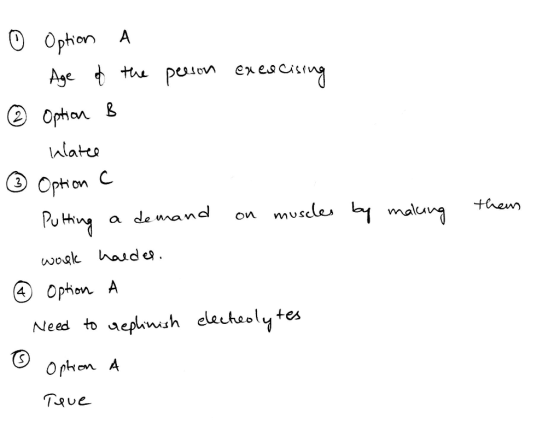 ① Option A
Age of the person exercising
② Option B
Water
③ Option C
Putting a demand on muscles by making them
work harder.
④ Option A
Need to replinish electrolytes
⑤ Option A
True